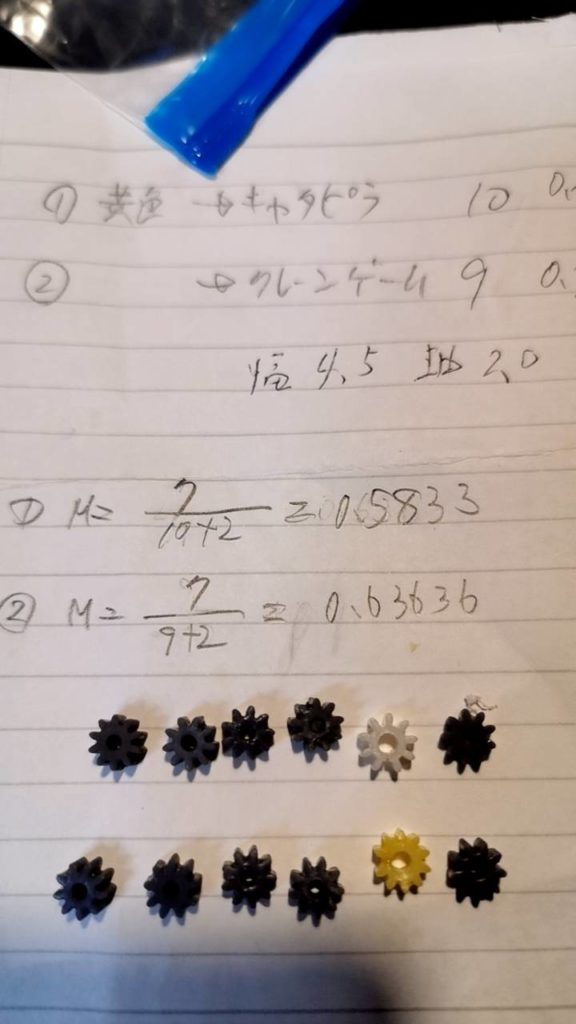 ① 黄色 → キャタピラ 10 0.
② → クレーンゲーム 9 0.
幅 4.5 2.0
① M = 7/10+2 = 0.5833
② M = 7/9+2 = 0.63636